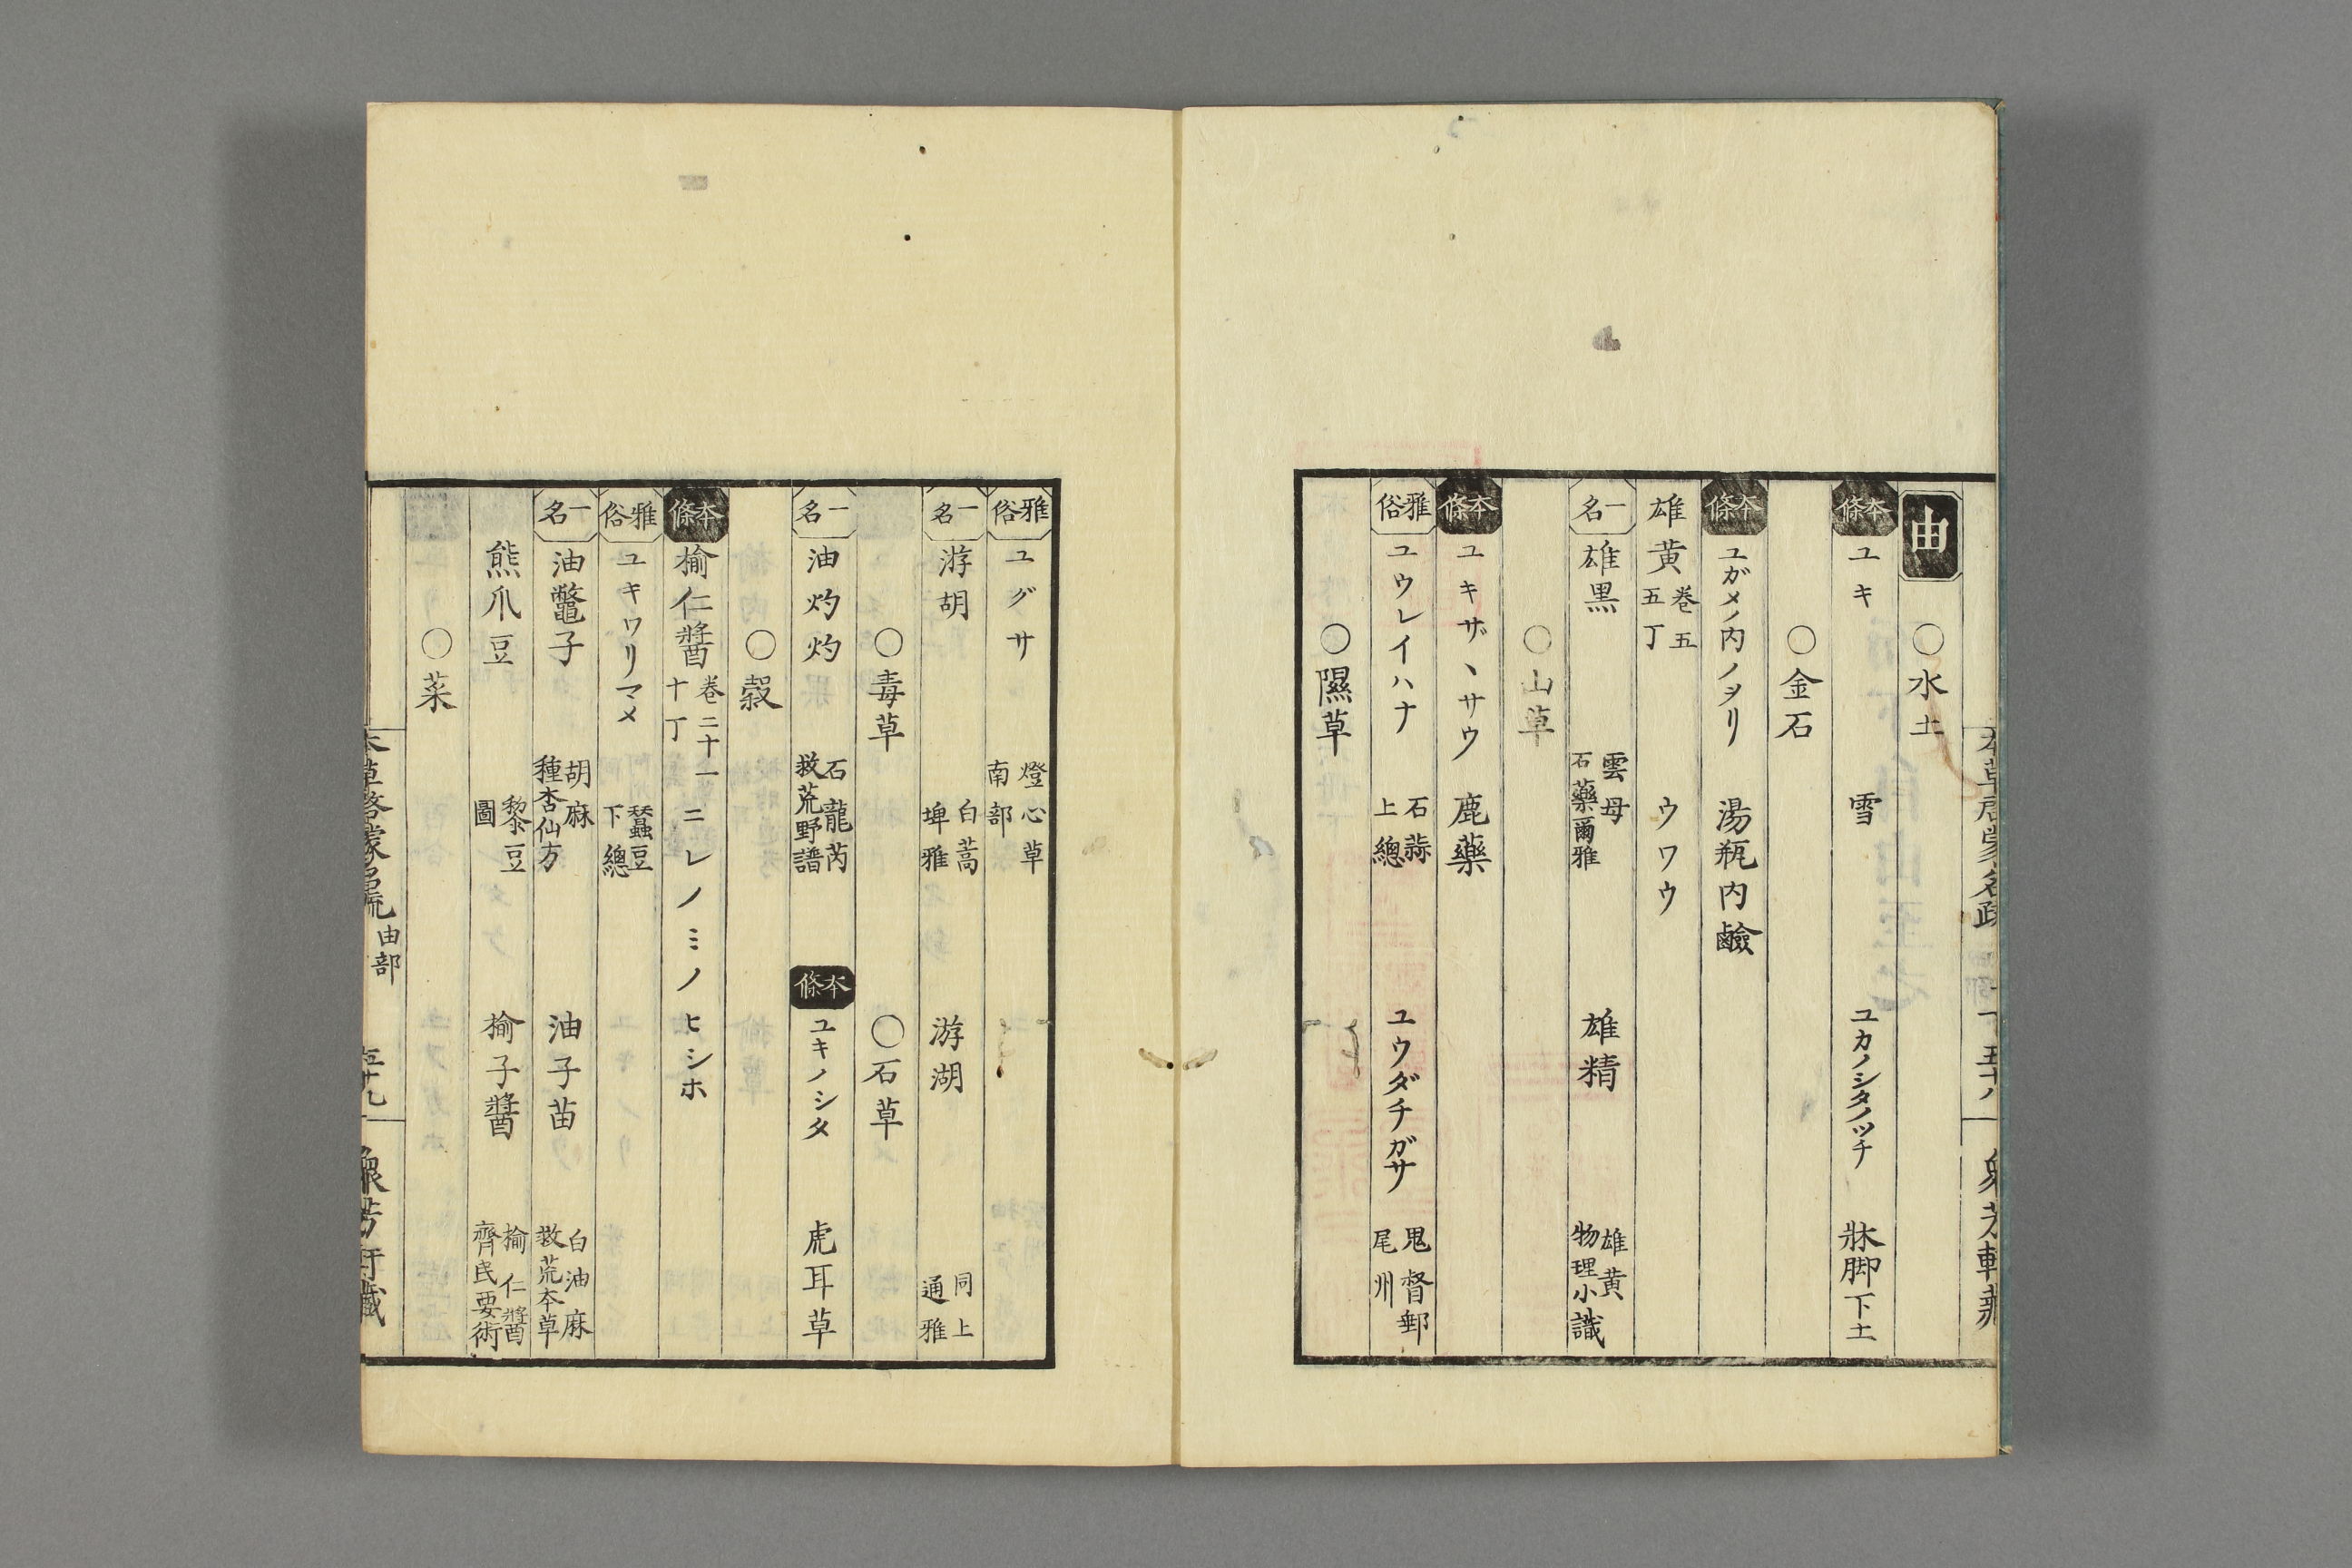 由
○水土
本條 ユキ 雪 ユカノシタノツチ 牀脚下土
○金石
本條 ユガメノ内ノヲリ 湯瓶内鹼
雄黄 巻五 五丁 ウワウ
一名 雄黒 雲母 石藥爾雅 雄精 雄黄 物理小識
○山草
本條 ユキザヽサウ 鹿藥
雅俗 ユウレイハナ 石蒜 上總 ユウダチガサ 鬼督郵 尾州
○隰草
雅俗 ユグサ 燈心草 南部
一名 游胡 白蒿 埤雅 游湖 同上 通雅
○毒草 ○石草
一名 油灼灼 石龍芮 救荒野譜 本條 ユキノシタ 虎耳草
○穀
本條 榆仁醬 巻二十一 十丁 ニレノミノヒシホ
雅俗 ユキワリマメ 蠶豆 下總
一名 油鼈子 胡麻 種杏仙方 油子苗 白油麻 救荒本草
熊爪豆 黎豆 圖 榆子醬 榆仁醬 齊民要術
○菜
由部